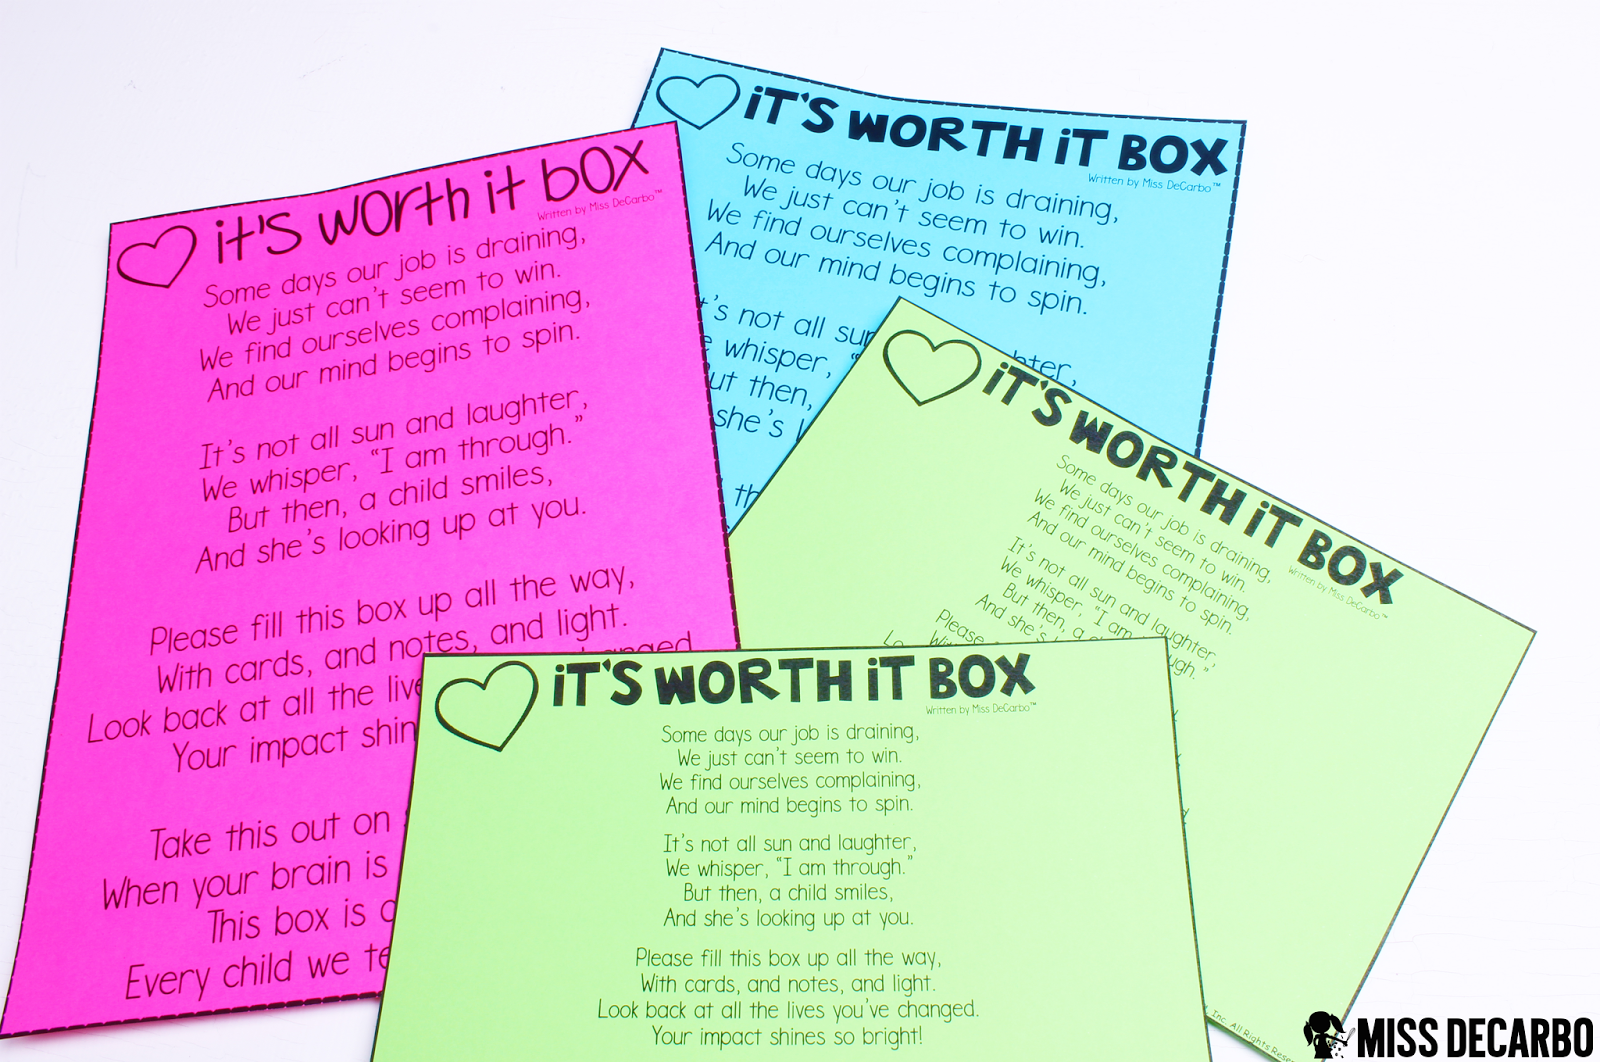 it's worth it box
Written by Miss DeCarbo™
Some days our job is draining,
We just can't seem to win.
We find ourselves complaining,
And our mind begins to spin.
It's not all sun and laughter,
We whisper, "I am through."
But then, a child smiles,
And she's looking up at you.
Please fill this box up all the way,
With cards, and notes, and light.
Look back at all the
Your impact
Take this out on
When your brain is
This box is
Every child we
iT'S WORTH iT BOX
Written by Miss DeCarbo™
Some days our job is draining,
We just can't seem to win.
We find ourselves complaining,
And our mind begins to spin.
not all
whisper, "
then,
she's
iT'S WORTH iT BOX
Written by Miss DeCarbo™
Some days our job is draining,
We just can't seem to win.
We find ourselves complaining,
And our mind begins to spin.
It's not all sun and laughter,
We whisper, "I am
But then, a
And she's
Please
iT'S WORTH iT BOX
Written by Miss DeCarbo™
Some days our job is draining,
We just can't seem to win.
We find ourselves complaining,
And our mind begins to spin.
It's not all sun and laughter,
We whisper, "I am through."
But then, a child smiles,
And she's looking up at you.
Please fill this box up all the way,
With cards, and notes, and light.
Look back at all the lives you've changed.
Your impact shines so bright!
Inc. All Rights
MISS DECARBO